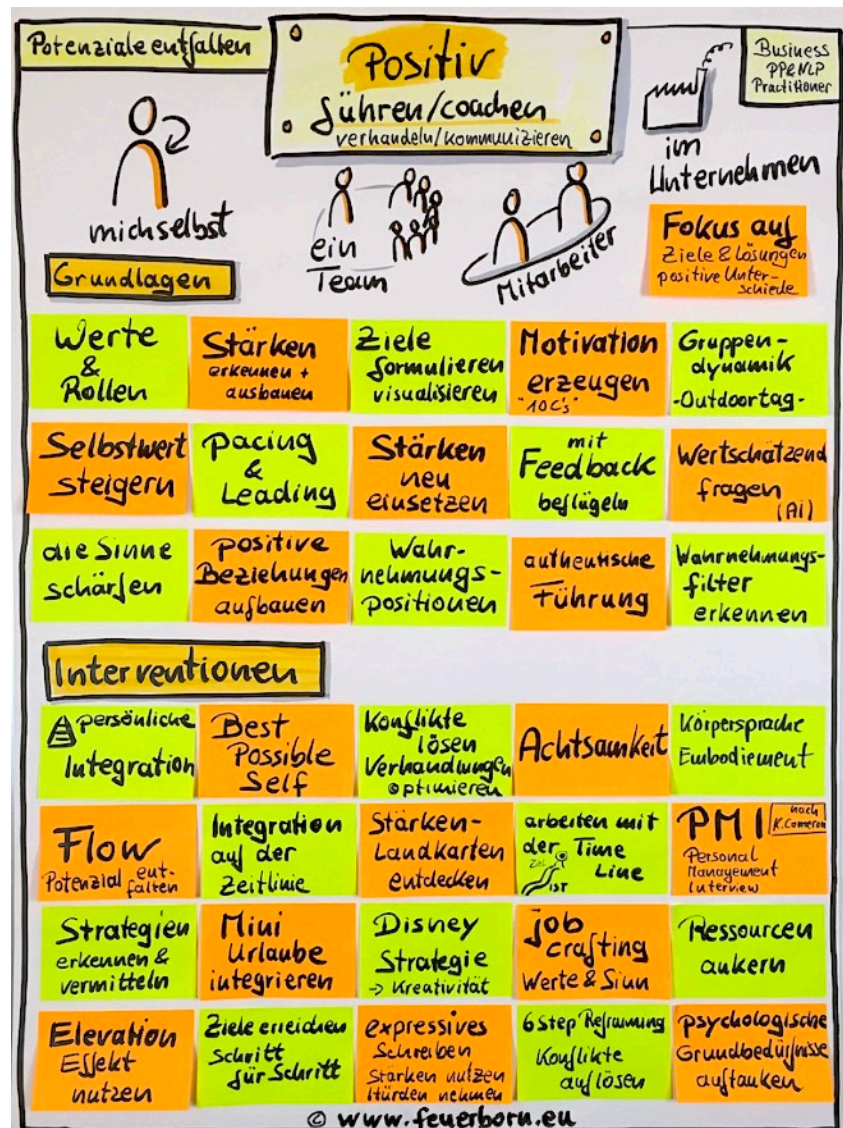 Potenziale entfalten
Positiv
führen/coachen
verhandeln/kommunizieren
Business
PP&NLP
Practitioner
mich selbst
ein
Team
Mitarbeiter
im
Unternehmen
Fokus auf
Ziele & Lösungen
positive Unter-
schiede
Grundlagen
Werte
&
Rollen
Stärken
erkennen +
ausbauen
Ziele
formulieren
visualisieren
Motivation
erzeugen
"10C's"
Gruppen-
dynamik
-Outdoortag-
Selbstwert
steigern
pacing
&
Leading
Stärken
neu
einsetzen
mit
Feedback
beflügeln
Wertschätzend
fragen
(Ai)
die Sinne
schärfen
positive
Beziehungen
aufbauen
Wahr-
nehmungs-
positionen
authentische
Führung
Wahrnehmungs-
filter
erkennen
Interventionen
persönliche
Integration
Best
Possible
Self
Konflikte
lösen
Verhandlungen
optimieren
Achtsamkeit
Körpersprache
Embodiement
Flow
Potenzial ent-
falten
Integration
auf der
Zeitlinie
Stärken-
Landkarten
entdecken
arbeiten mit
der Time
Line
Ziel
IST
PMI
nach
K.Cameron
Personal
Management
Interview
Strategien
erkennen &
vermitteln
Mini
Urlaube
integrieren
Disney
Strategie
→ Kreativität
job
crafting
Werte & Sinn
Ressourcen
ankern
Elevation
Effekt
nutzen
Ziele erreichen
Schritt
für Schritt
expressives
Schreiben
Stärken nutzen
Hürden nehmen
6 Step Reframing
Konflikte
auflösen
psychologische
Grundbedürfnisse
auftanken
© www.feuerborn.eu